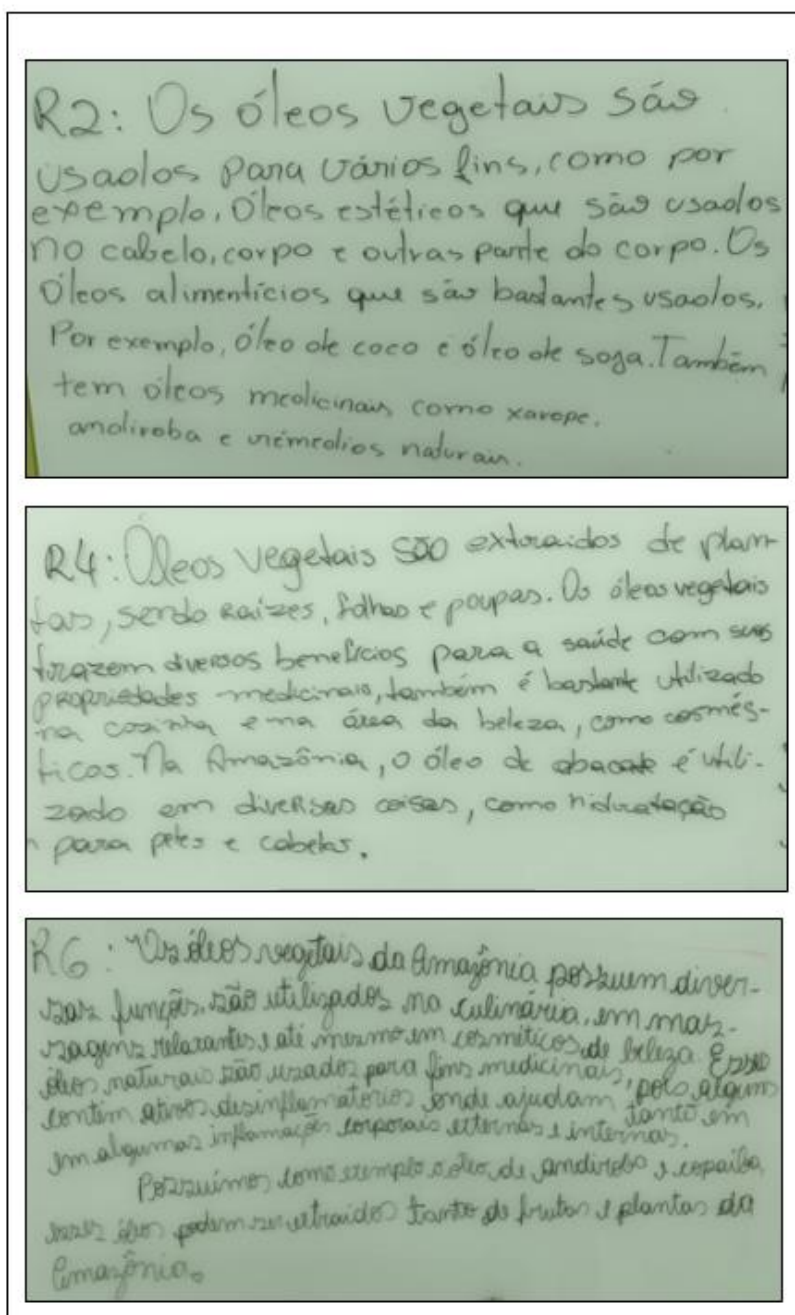 R2: Os óleos vegetais são
usados para vários fins, como por
exemplo, Óleos estéticos que são usados
no cabelo, corpo e outras parte do corpo. Os
Óleos alimentícios que são bastantes usados.
Por exemplo, óleo de coco e óleo de soja. Também
tem óleos medicinais como xarope,
andiroba e remédios naturais.
R4: Óleos vegetais são extraidos de plan-
tas, sendo raízes, folhas e poupas. Os óleos vegetais
trazem diversos benefícios para a saúde com suas
propriedades medicinais, também é bastante utilizado
na cozinha e na área da beleza, como cosmés-
ticos. Na Amazônia, o óleo de abacate é utili-
zado em diversas coisas, como hidratação
para peles e cabelos.
R6: Os óleos vegetais da Amazônia possuem diver-
sas funções. são utilizados na culinária, em mas-
sagens relaxantes e até mesmo em cosméticos de beleza. Esses
óleos naturais são usados para fins medicinais, pois alguns
contém ativos desinflamatórios onde ajudam tanto em
em algumas inflamações corporais externas e internas.
Possuímos como exemplo o óleo de andiroba e copaíba,
esses óleos podem ser extraidos tanto de frutas e plantas da
Amazônia.